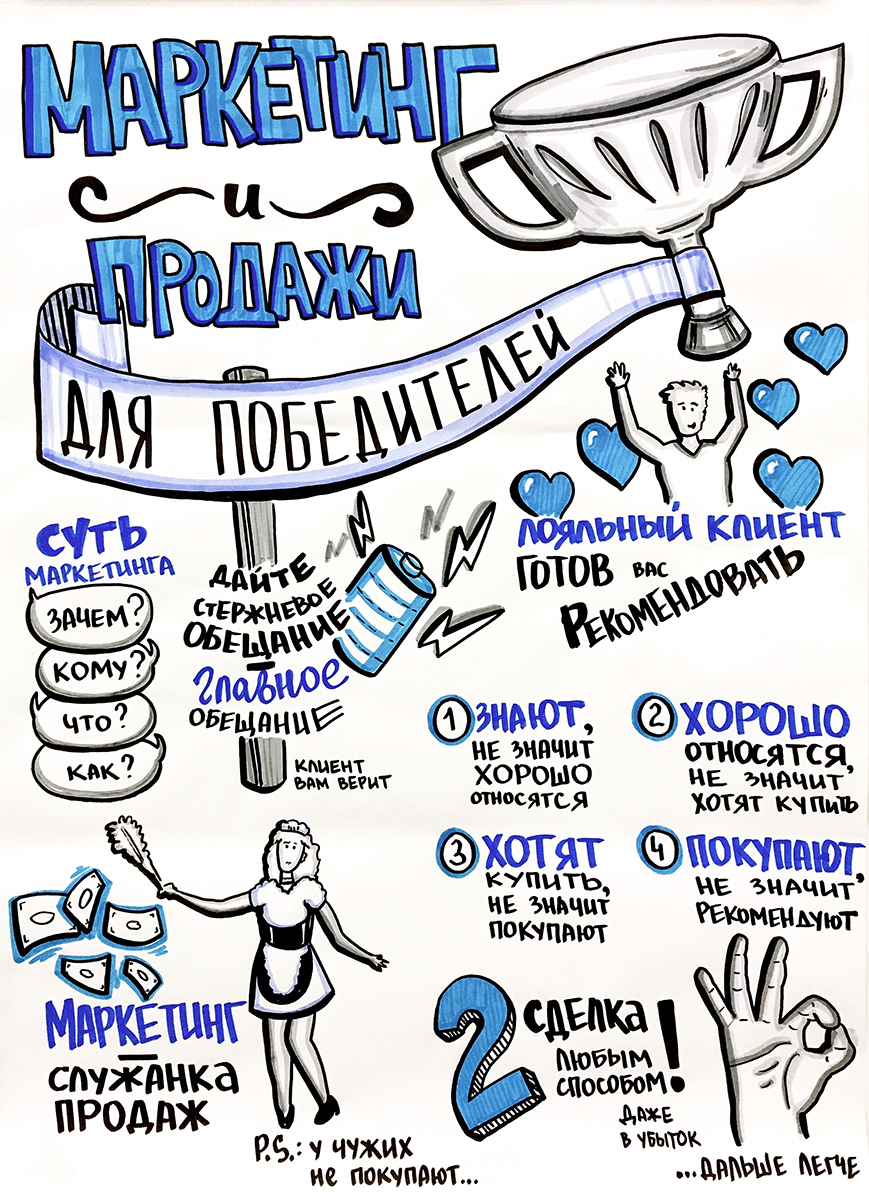 МАРКЕТИНГ
И
ПРОДАЖИ
ДЛЯ ПОБЕДИТЕЛЕЙ
ЛОЯЛЬНЫЙ КЛИЕНТ
ГОТОВ ВАС
РЕКОМЕНДОВАТЬ
СУТЬ
МАРКЕТИНГА
ЗАЧЕМ?
КОМУ?
ЧТО?
КАК?
ДАЙТЕ
СТЕРЖНЕВОЕ
ОБЕЩАНИЕ
–
ГЛАВНОЕ
ОБЕЩАНИЕ
КЛИЕНТ
ВАМ ВЕРИТ
1 ЗНАЮТ,
НЕ ЗНАЧИТ
ХОРОШО
ОТНОСЯТСЯ
2 ХОРОШО
ОТНОСЯТСЯ,
НЕ ЗНАЧИТ
ХОТЯТ КУПИТЬ
3 ХОТЯТ
КУПИТЬ,
НЕ ЗНАЧИТ
ПОКУПАЮТ
4 ПОКУПАЮТ,
НЕ ЗНАЧИТ
РЕКОМЕНДУЮТ
МАРКЕТИНГ
–
СЛУЖАНКА
ПРОДАЖ
P.S.: У ЧУЖИХ
НЕ ПОКУПАЮТ...
2 СДЕЛКА
ЛЮБЫМ
СПОСОБОМ!
ДАЖЕ
В УБЫТОК
...ДАЛЬШЕ ЛЕГЧЕ